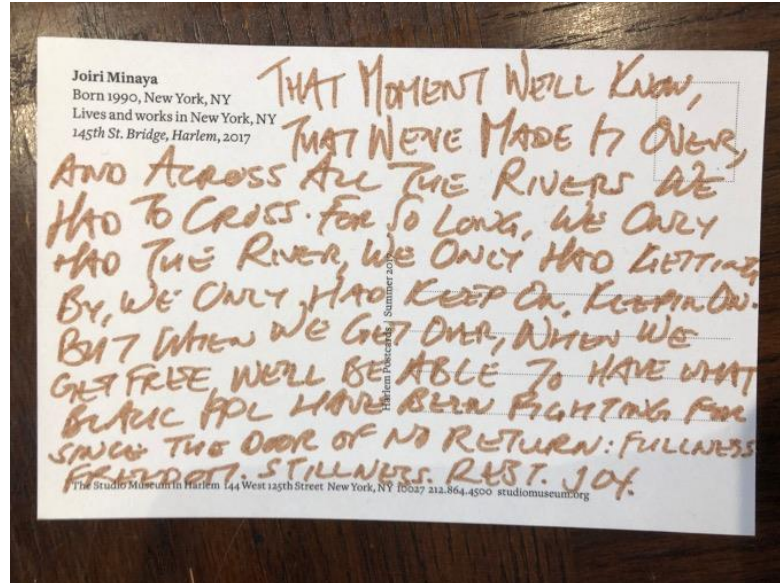 Joiri Minaya
Born 1990, New York, NY
Lives and works in New York, NY
145th St. Bridge, Harlem, 2017
THAT MOMENT WE'LL KNOW,
THAT WE'VE MADE IT OVER,
AND ACROSS ALL THE RIVERS WE
HAD TO CROSS. FOR SO LONG, WE ONLY
HAD THE RIVER, WE ONLY HAD GETTING
BY, WE ONLY HAD KEEP ON, KEEPIN ON.
BUT WHEN WE GET OVER, WHEN WE
GET FREE WE'LL BE ABLE TO HAVE WHAT
BLACK PPL HAVE BEEN FIGHTING FOR
SINCE THE DOOR OF NO RETURN: FULLNESS
FREEDOM. STILLNESS. REST. JOY.
Harlem Postcards | Summer 2017
The Studio Museum in Harlem 144 West 125th Street New York, NY 10027 212.864.4500 studiomuseum.org